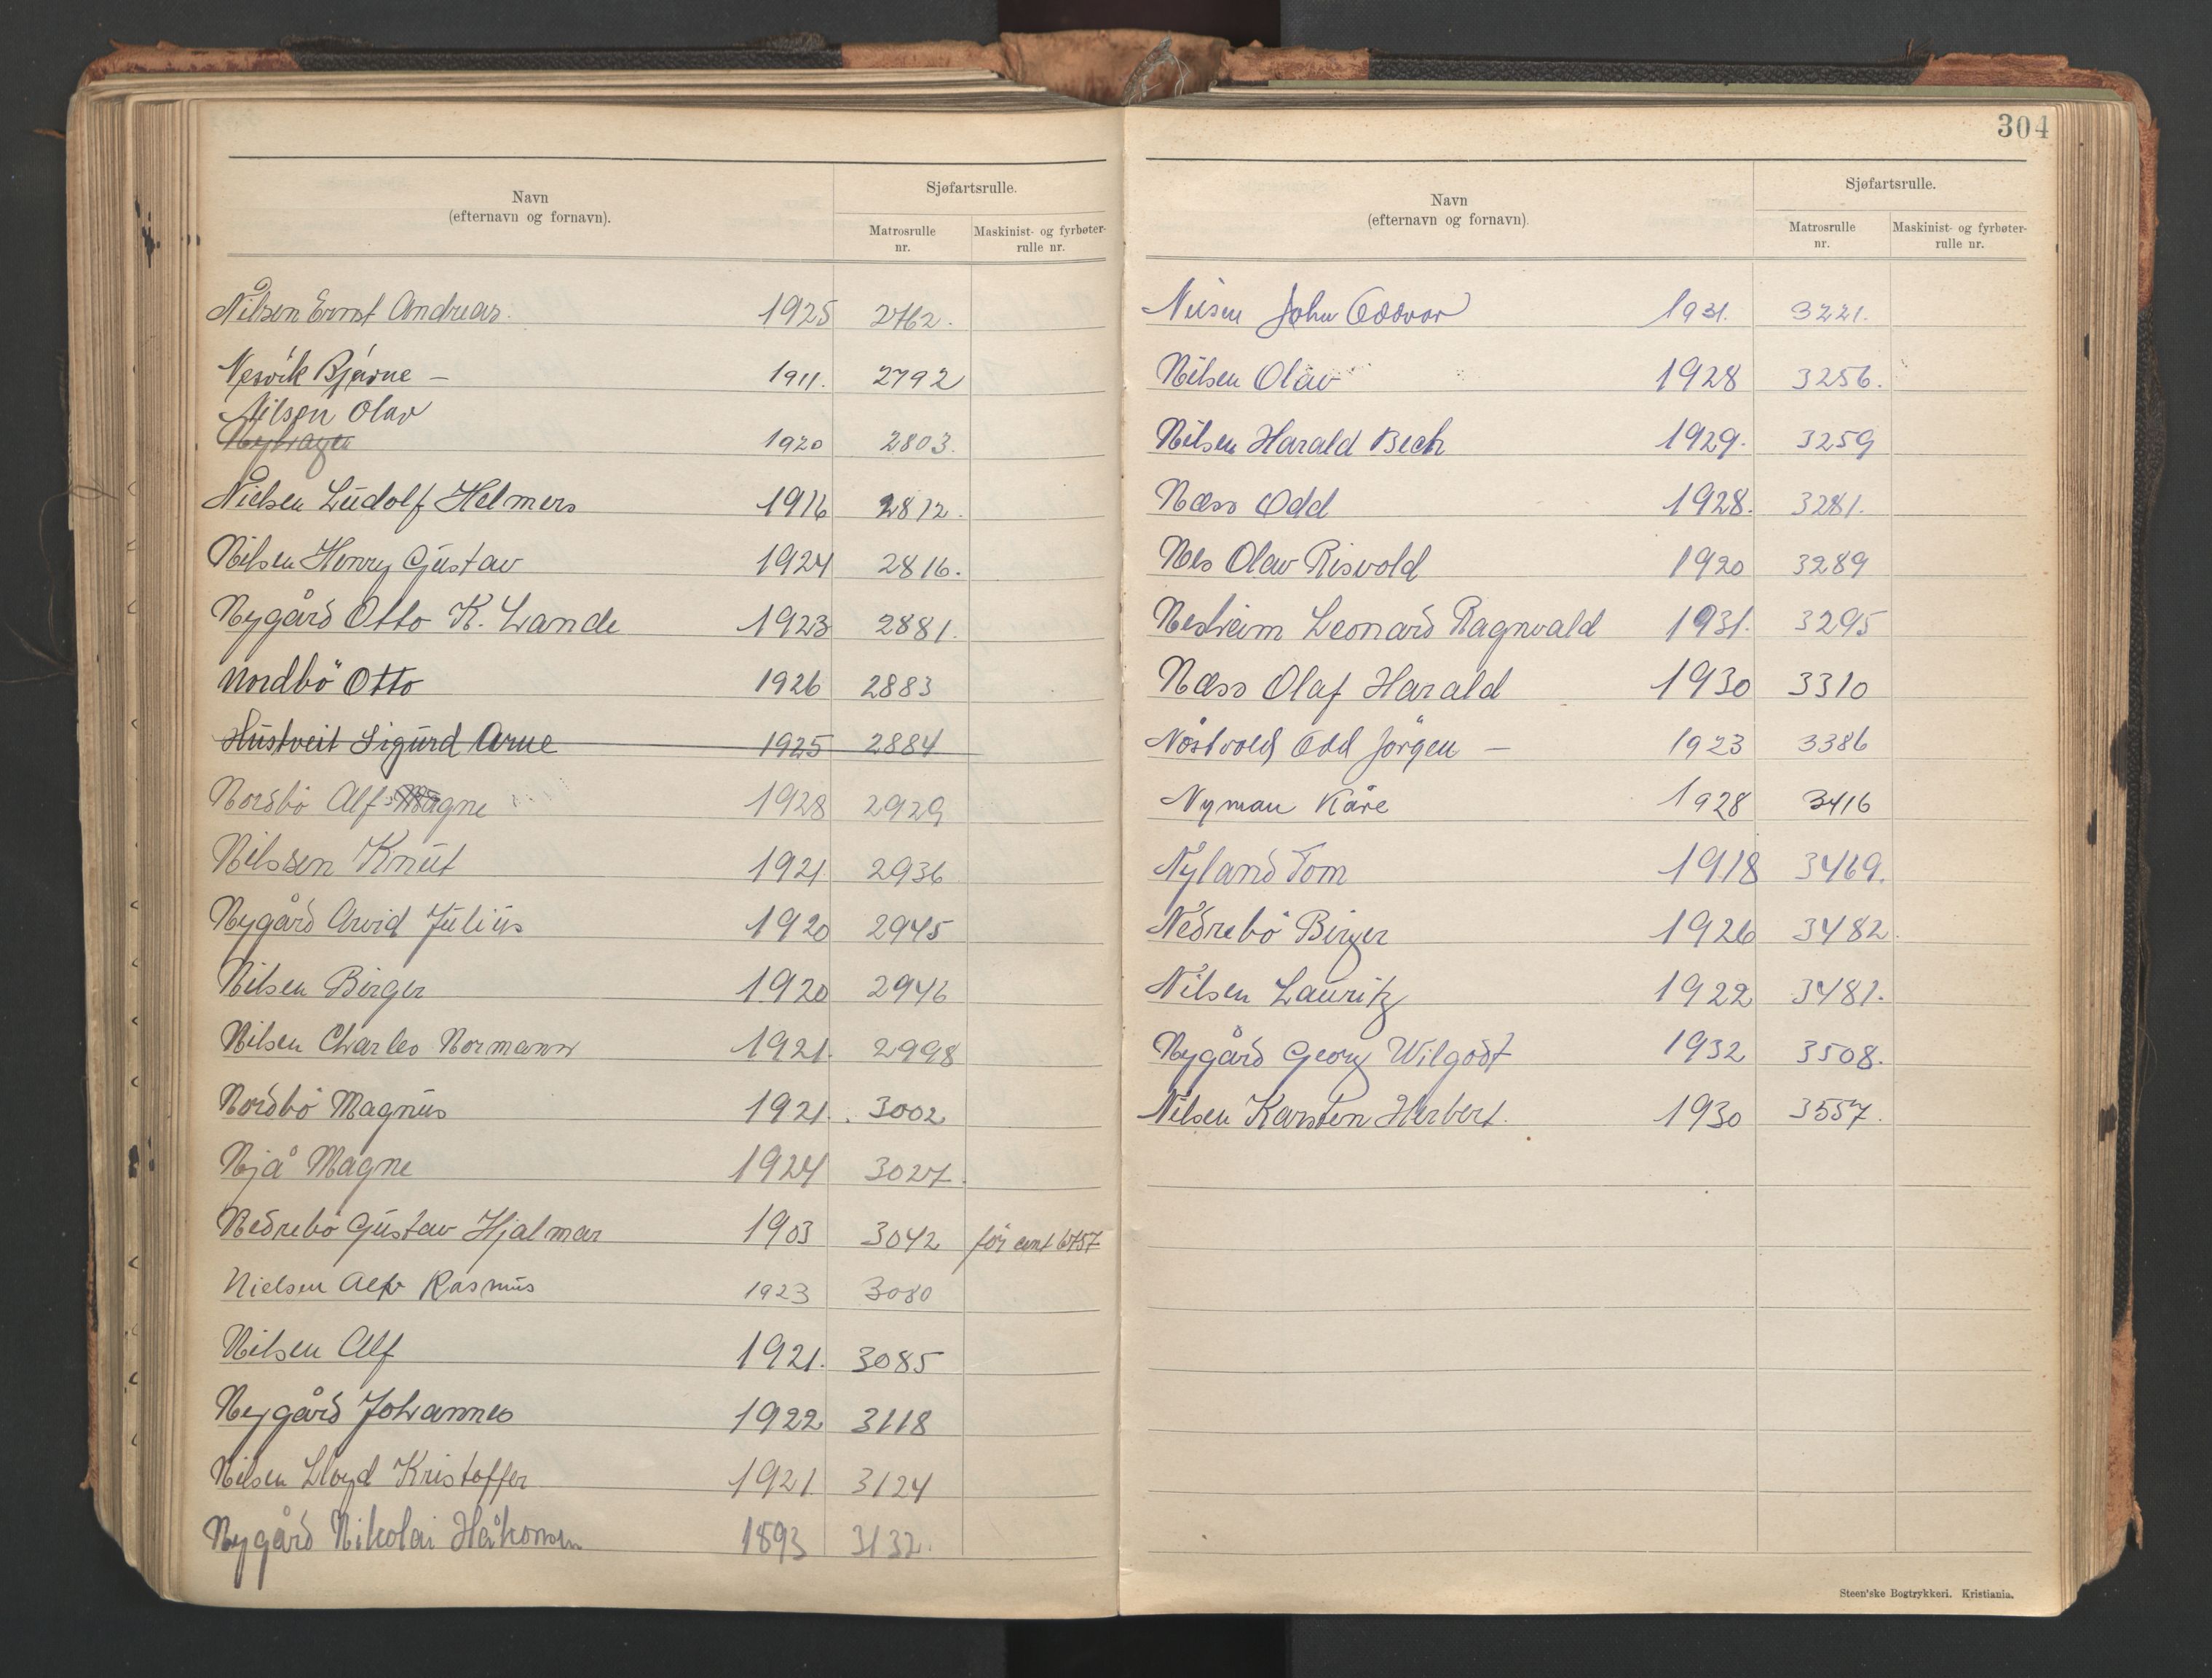 Navn
(efternavn og fornavn).
Sjøfartsrulle.
Matrosrulle
nr.
Maskinist- og fyrbøter-
rulle nr.
Nilsen Ernst Andreas. 1925 2762.
Nesvik Bjarne – 1911. 2792
Nilsen Olav
1920 2803.
Nielsen Ludolf Helmers 1916 2812.
Nilsen Henry Gustav 1924 2816.
Nygård Otto K. Lande 1923 2881.
Nordbö Otto 1926 2883
Hustveit Sigurd Arne 1925 2884
Nordbö Alf Magne 1928 2929
Nilssen Knut 1921 2936
Nygård Arvid Julius 1920 2945
Nilsen Birger 1920 2946
Nilsen Charles Normann 1921. 2998
Nordbö Magnus 1921. 3002
Njå Magne 1924 3027.
Nedrebö Gustav Hjalmar 1903 3042 för 6757
Nielsen Alf Rasmus 1923 3080
Nilsen Alf 1921. 3085
Nygård Johannes 1922 3118
Nilsen Lloyd Kristoffer 1921 3124
Nygård Nikolai Håkonsen 1893 3132.
304
Navn
(efternavn og fornavn).
Sjøfartsrulle.
Matrosrulle
nr.
Maskinist- og fyrbøter-
rulle nr.
Nilsen John Oddvar 1931. 3221.
Nilsen Olav 1928 3256.
Nilsen Harald Bech 1929. 3259
Næss Odd 1928. 3281.
Nes Olav Risvold 1920 3289
Nesheim Leonard Ragnvald 1931. 3295
Næss Olaf Harald 1930 3310
Nöstvold Odd Jörgen – 1923 3386
Nyman Kåre 1928 3416
Nyland Tom 1918 3469.
Nedrebö Birger 1926 3482.
Nilsen Lauritz 1922 3481.
Nygård Georg Wilgodt 1932 3508.
Nilsen Karsten Herbert. 1930 3557.
Steen'ske Bogtrykkeri. Kristiania.